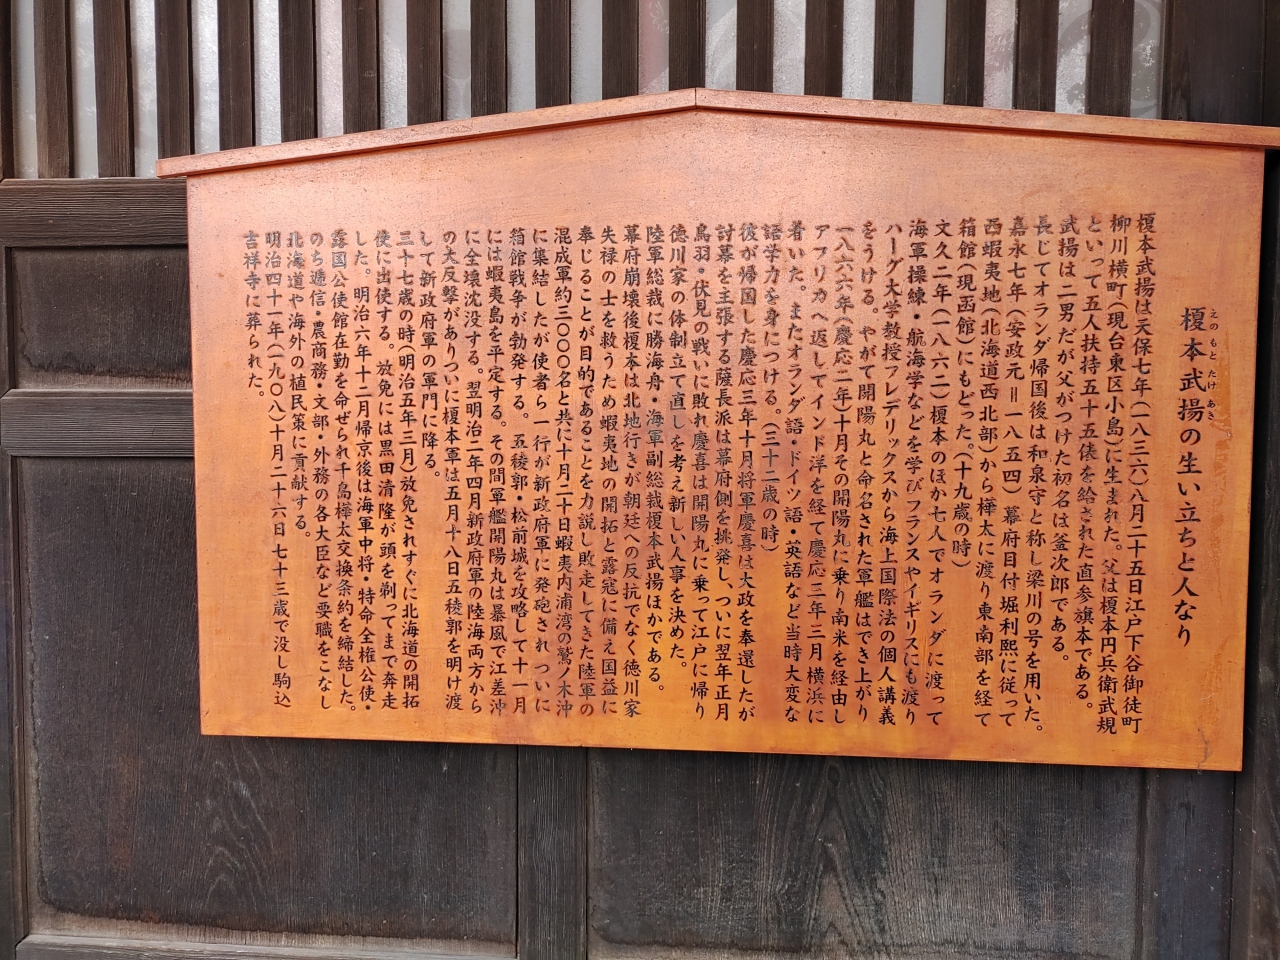 榎本武揚の生い立ちと人なり
えのもとたけあき
榎本武揚は天保七年(一八三六)八月二十五日江戸下谷御徒町
柳川横町(現台東区小島)に生まれた。父は榎本円兵衛武規
といって五人扶持五十五俵を給された直参旗本である。
武揚は二男だが父がつけた初名は釜次郎である。
長じてオランダ帰国後は和泉守と称し梁川の号を用いた。
嘉永七年(安政元=一八五四)幕府目付堀利熙に従って
西蝦夷地(北海道西北部)から樺太に渡り東南部を経て
箱館(現函館)にもどった。(十九歳の時)
文久二年(一八六二)榎本のほか七人でオランダに渡って
海軍操練・航海学などを学びフランスやイギリスにも渡り
ハーグ大学教授フレデリックスから海上国際法の個人講義
をうける。やがて開陽丸と命名された軍艦はでき上がり
一八六六年(慶応二年)十月その開陽丸に乗り南米を経由し
アフリカへ返してインド洋を経て慶応三年三月横浜に
着いた。またオランダ語・ドイツ語・英語など当時大変な
語学力を身につける。(三十二歳の時)
彼が帰国した慶応三年十月将軍慶喜は大政を奉還したが
討幕を主張する薩長派は幕府側を挑発し、ついに翌年正月
鳥羽・伏見の戦いに敗れ慶喜は開陽丸に乗って江戸に帰り
徳川家の体制立て直しを考え新しい人事を決めた。
陸軍総裁に勝海舟・海軍副総裁榎本武揚ほかである。
幕府崩壊後榎本は北地行きが朝廷への反抗でなく徳川家
失禄の士を救うため蝦夷地の開拓と露寇に備え国益に
奉じることが目的であることを力説し敗走してきた陸軍の
混成軍約三〇〇〇名と共に十月二十日蝦夷内浦湾の鷲ノ木沖
に集結したが使者ら一行が新政府軍に発砲されついに
箱館戦争が勃発する。五稜郭・松前城を攻略して十一月
には蝦夷島を平定する。その間軍艦開陽丸は暴風で江差沖
に全壊沈没する。翌明治二年四月新政府軍の陸海両方から
の大反撃がありついに榎本軍は五月十八日五稜郭を明け渡
して新政府軍の軍門に降る。
三十七歳の時(明治五年三月)放免されすぐに北海道の開拓
使に出使する。放免には黒田清隆が頭を剃ってまで奔走
した。明治六年十二月帰京後は海軍中将・特命全権公使・
露国公使館在勤を命ぜられ千島樺太交換条約を締結した。
のち逓信・農商務・文部・外務の各大臣など要職をこなし
北海道や海外の植民策に貢献する。
明治四十一年(一九〇八)十月二十六日七十三歳で没し駒込
吉祥寺に葬られた。